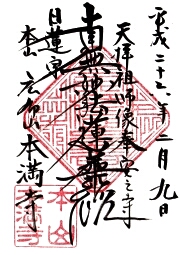 平成二十六年二月九日
天拝祖師使奉安之寺
南無妙法蓮華経
日蓮宗
本山 広布山 本満寺
本山
本満寺